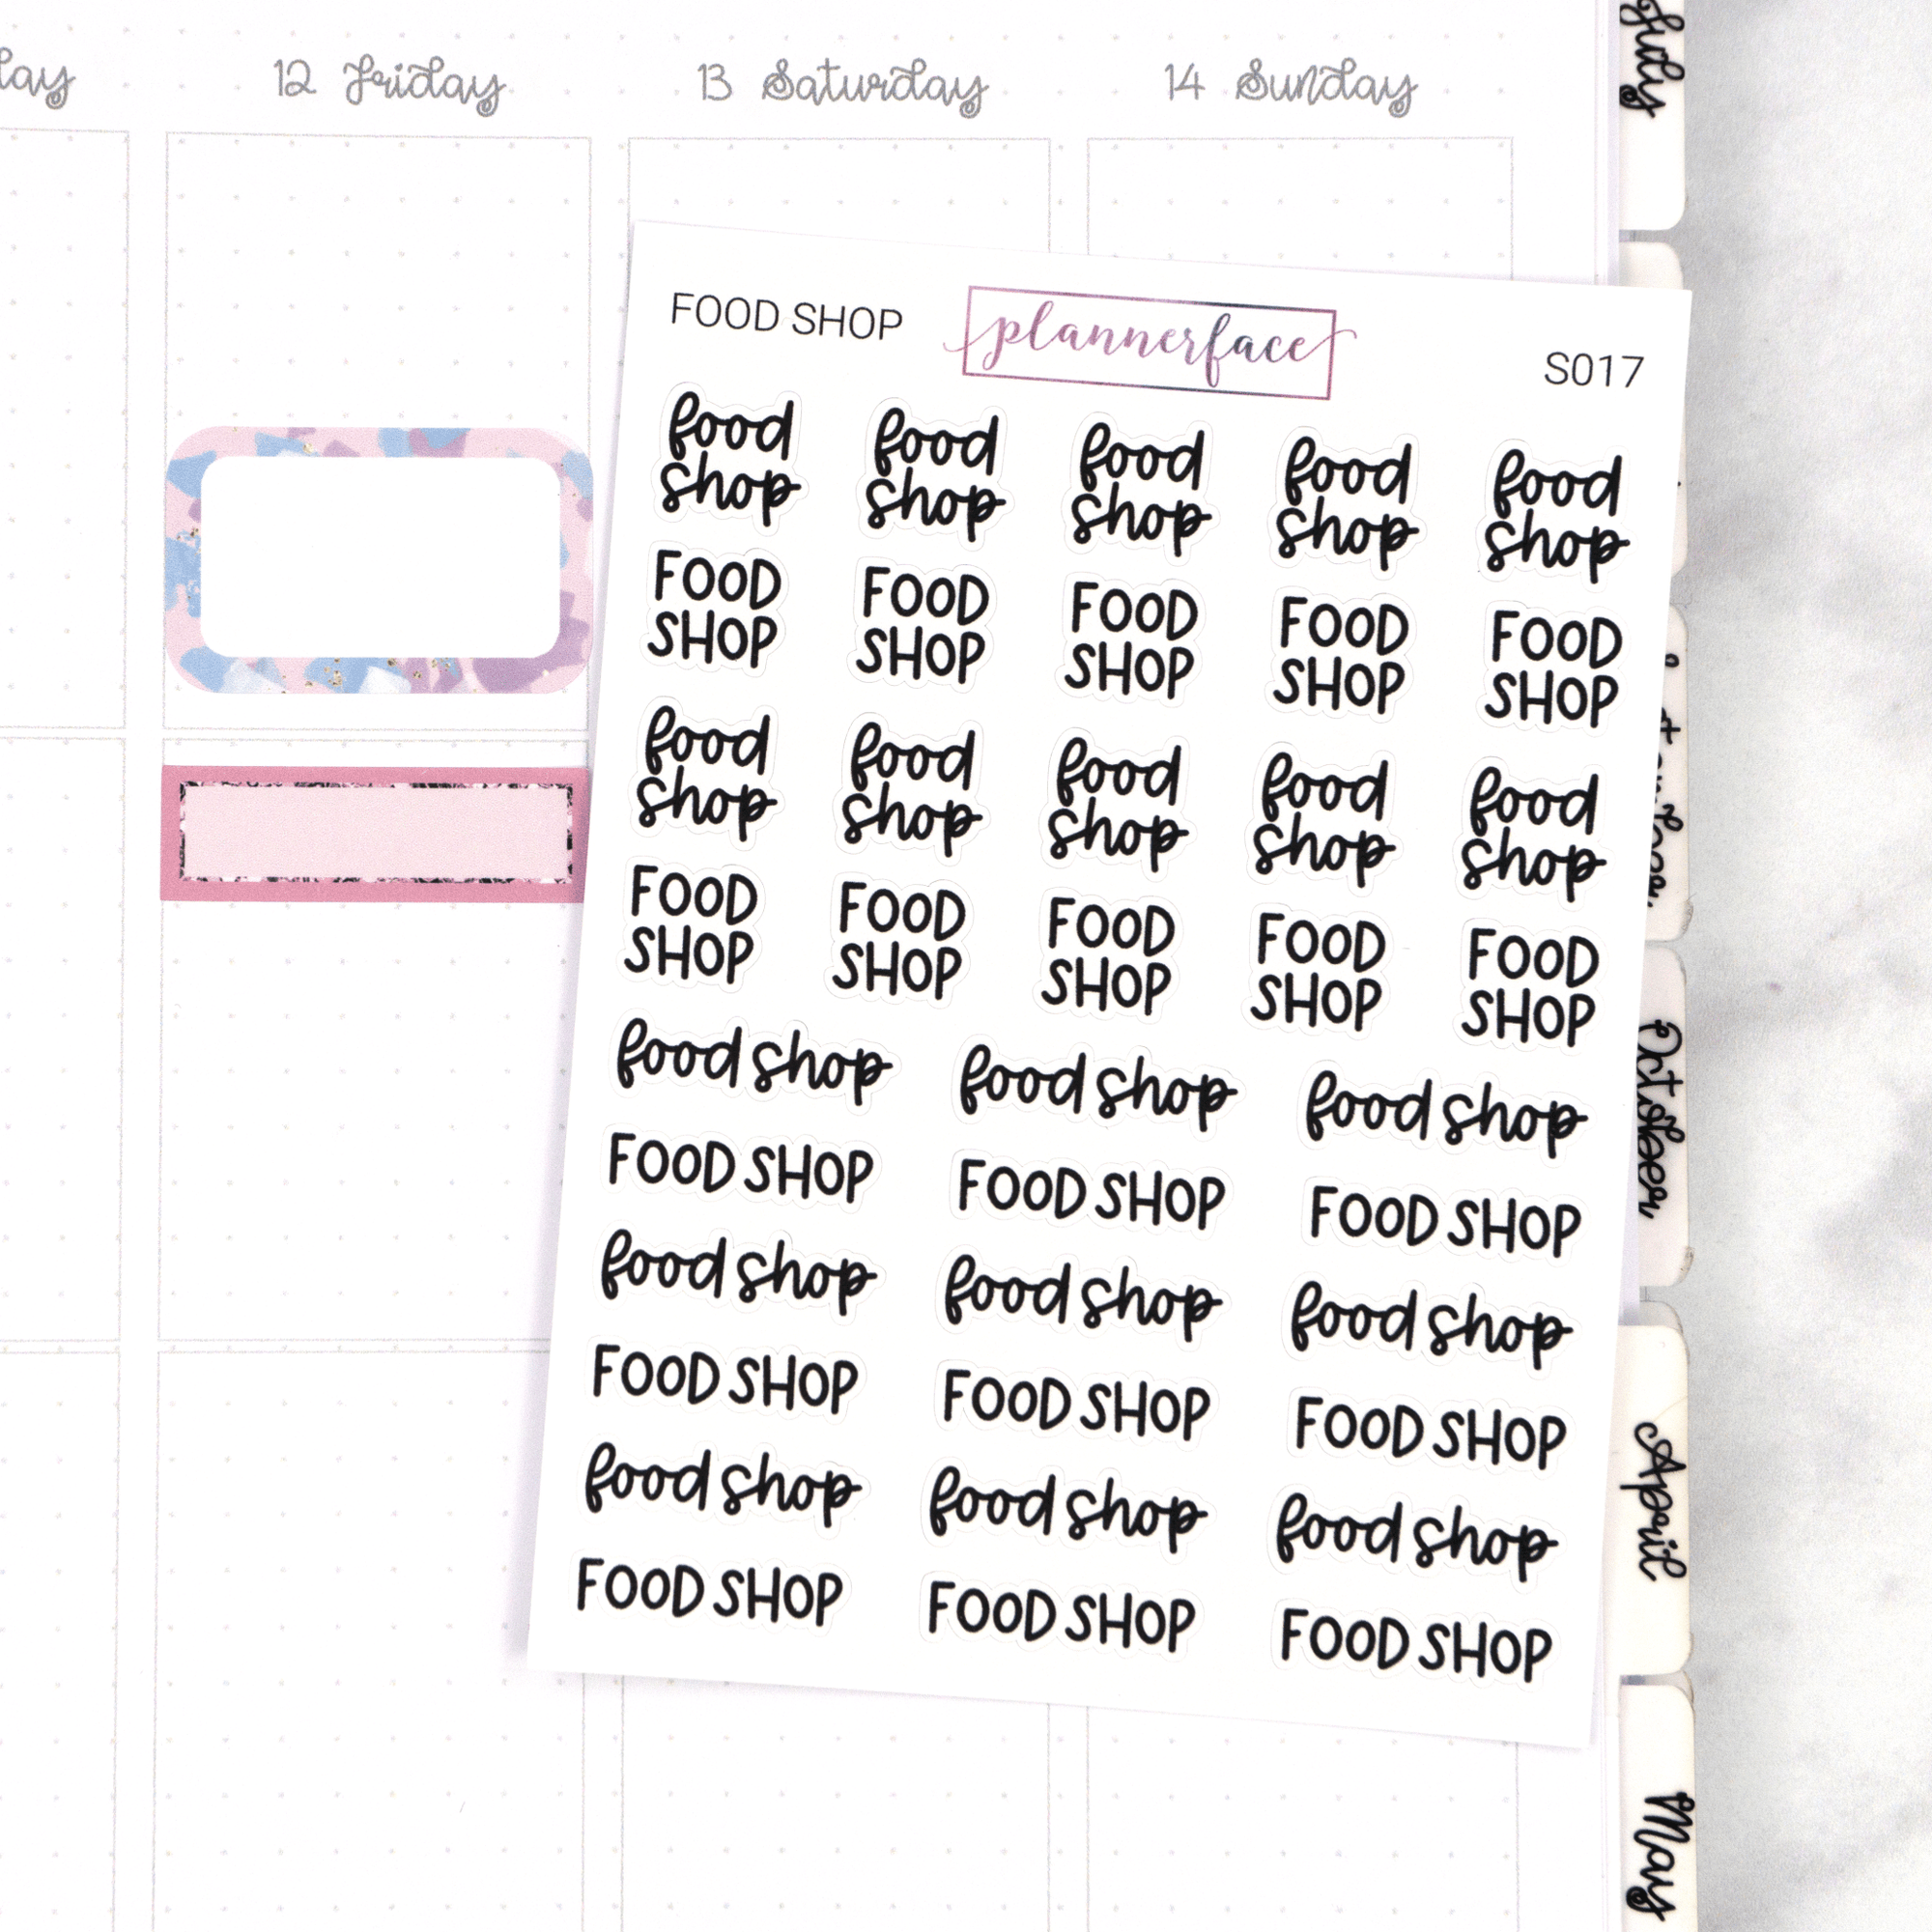 12 Friday
13 Saturday
14 Sunday
July
FOOD SHOP
plannerface
S017
food food food food food
shop shop shop shop shop
FOOD FOOD FOOD FOOD FOOD
SHOP SHOP SHOP SHOP SHOP
food food food food food
shop shop shop shop shop
FOOD FOOD FOOD FOOD FOOD
SHOP SHOP SHOP SHOP SHOP
food shop food shop food shop
FOOD SHOP FOOD SHOP FOOD SHOP
food shop food shop food shop
FOOD SHOP FOOD SHOP FOOD SHOP
food shop food shop food shop
FOOD SHOP FOOD SHOP FOOD SHOP
October
April
May